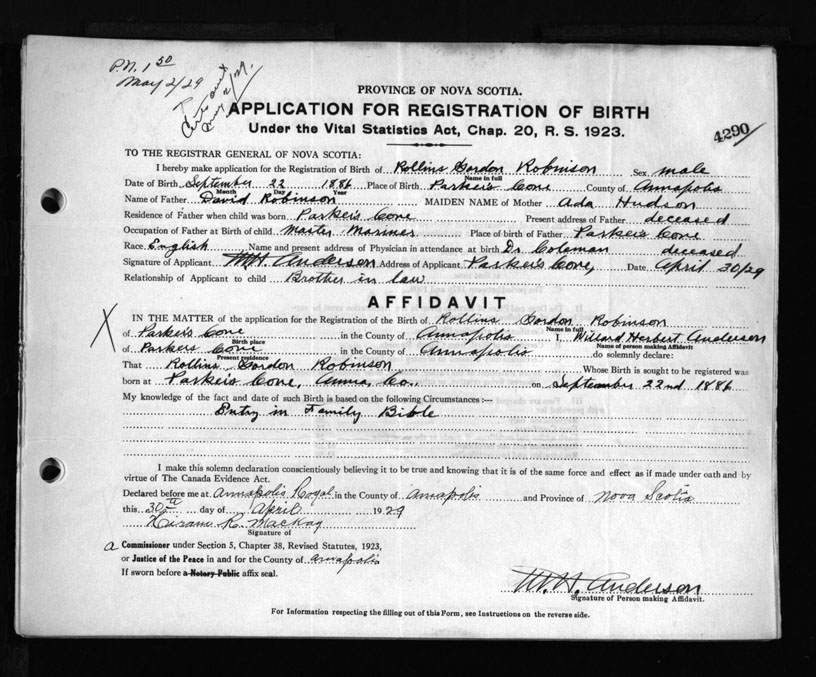 P.N. 1 50
May 2/29
May 2/29.
PROVINCE OF NOVA SCOTIA.
APPLICATION FOR REGISTRATION OF BIRTH
Under the Vital Statistics Act, Chap. 20, R. S. 1923.
4290
TO THE REGISTRAR GENERAL OF NOVA SCOTIA:
I hereby make application for the Registration of Birth of Rollins Gordon Robinson Sex male
Name in full
Date of Birth September 22 1886 Place of Birth Parker's Cove County of Annapolis
Month Day Year
Name of Father David Robinson MAIDEN NAME of Mother Ada Hudson
Residence of Father when child was born Parker's Cove Present address of Father deceased
Occupation of Father at Birth of child Master Mariner Place of birth of Father Parker's Cove
Race English Name and present address of Physician in attendance at birth Dr Coleman deceased
Signature of Applicant W.H. Anderson Address of Applicant Parker's Cove, Date April 30/29
Relationship of Applicant to child Brother in law
AFFIDAVIT
X
IN THE MATTER of the application for the Registration of the Birth of Rollins Gordon Robinson
Name in full
of Parker's Cove in the County of Annapolis I, Willard Herbert Anderson
Birth place Name of person making Affidavit
of Parkers Cove in the County of Annapolis do solemnly declare:
Present residence
That Rollins Gordon Robinson Whose Birth is sought to be registered was
born at Parker's Cove, Anna. Co., on September 22nd 1886
My knowledge of the fact and date of such Birth is based on the following Circumstances :—
Entry in Family Bible
I make this solemn declaration conscientiously believing it to be true and knowing that it is of the same force and effect as if made under oath and by
virtue of The Canada Evidence Act.
Declared before me at Annapolis Royal in the County of Annapolis and Province of Nova Scotia
this 30th day of April 1929
Hiram R. Mackay
Signature of
a Commissioner under Section 5, Chapter 38, Revised Statutes, 1923,
or Justice of the Peace in and for the County of Annapolis
If sworn before a Notary Public affix seal.
W.H. Anderson
Signature of Person making Affidavit.
For Information respecting the filling out of this Form, see Instructions on the reverse side.